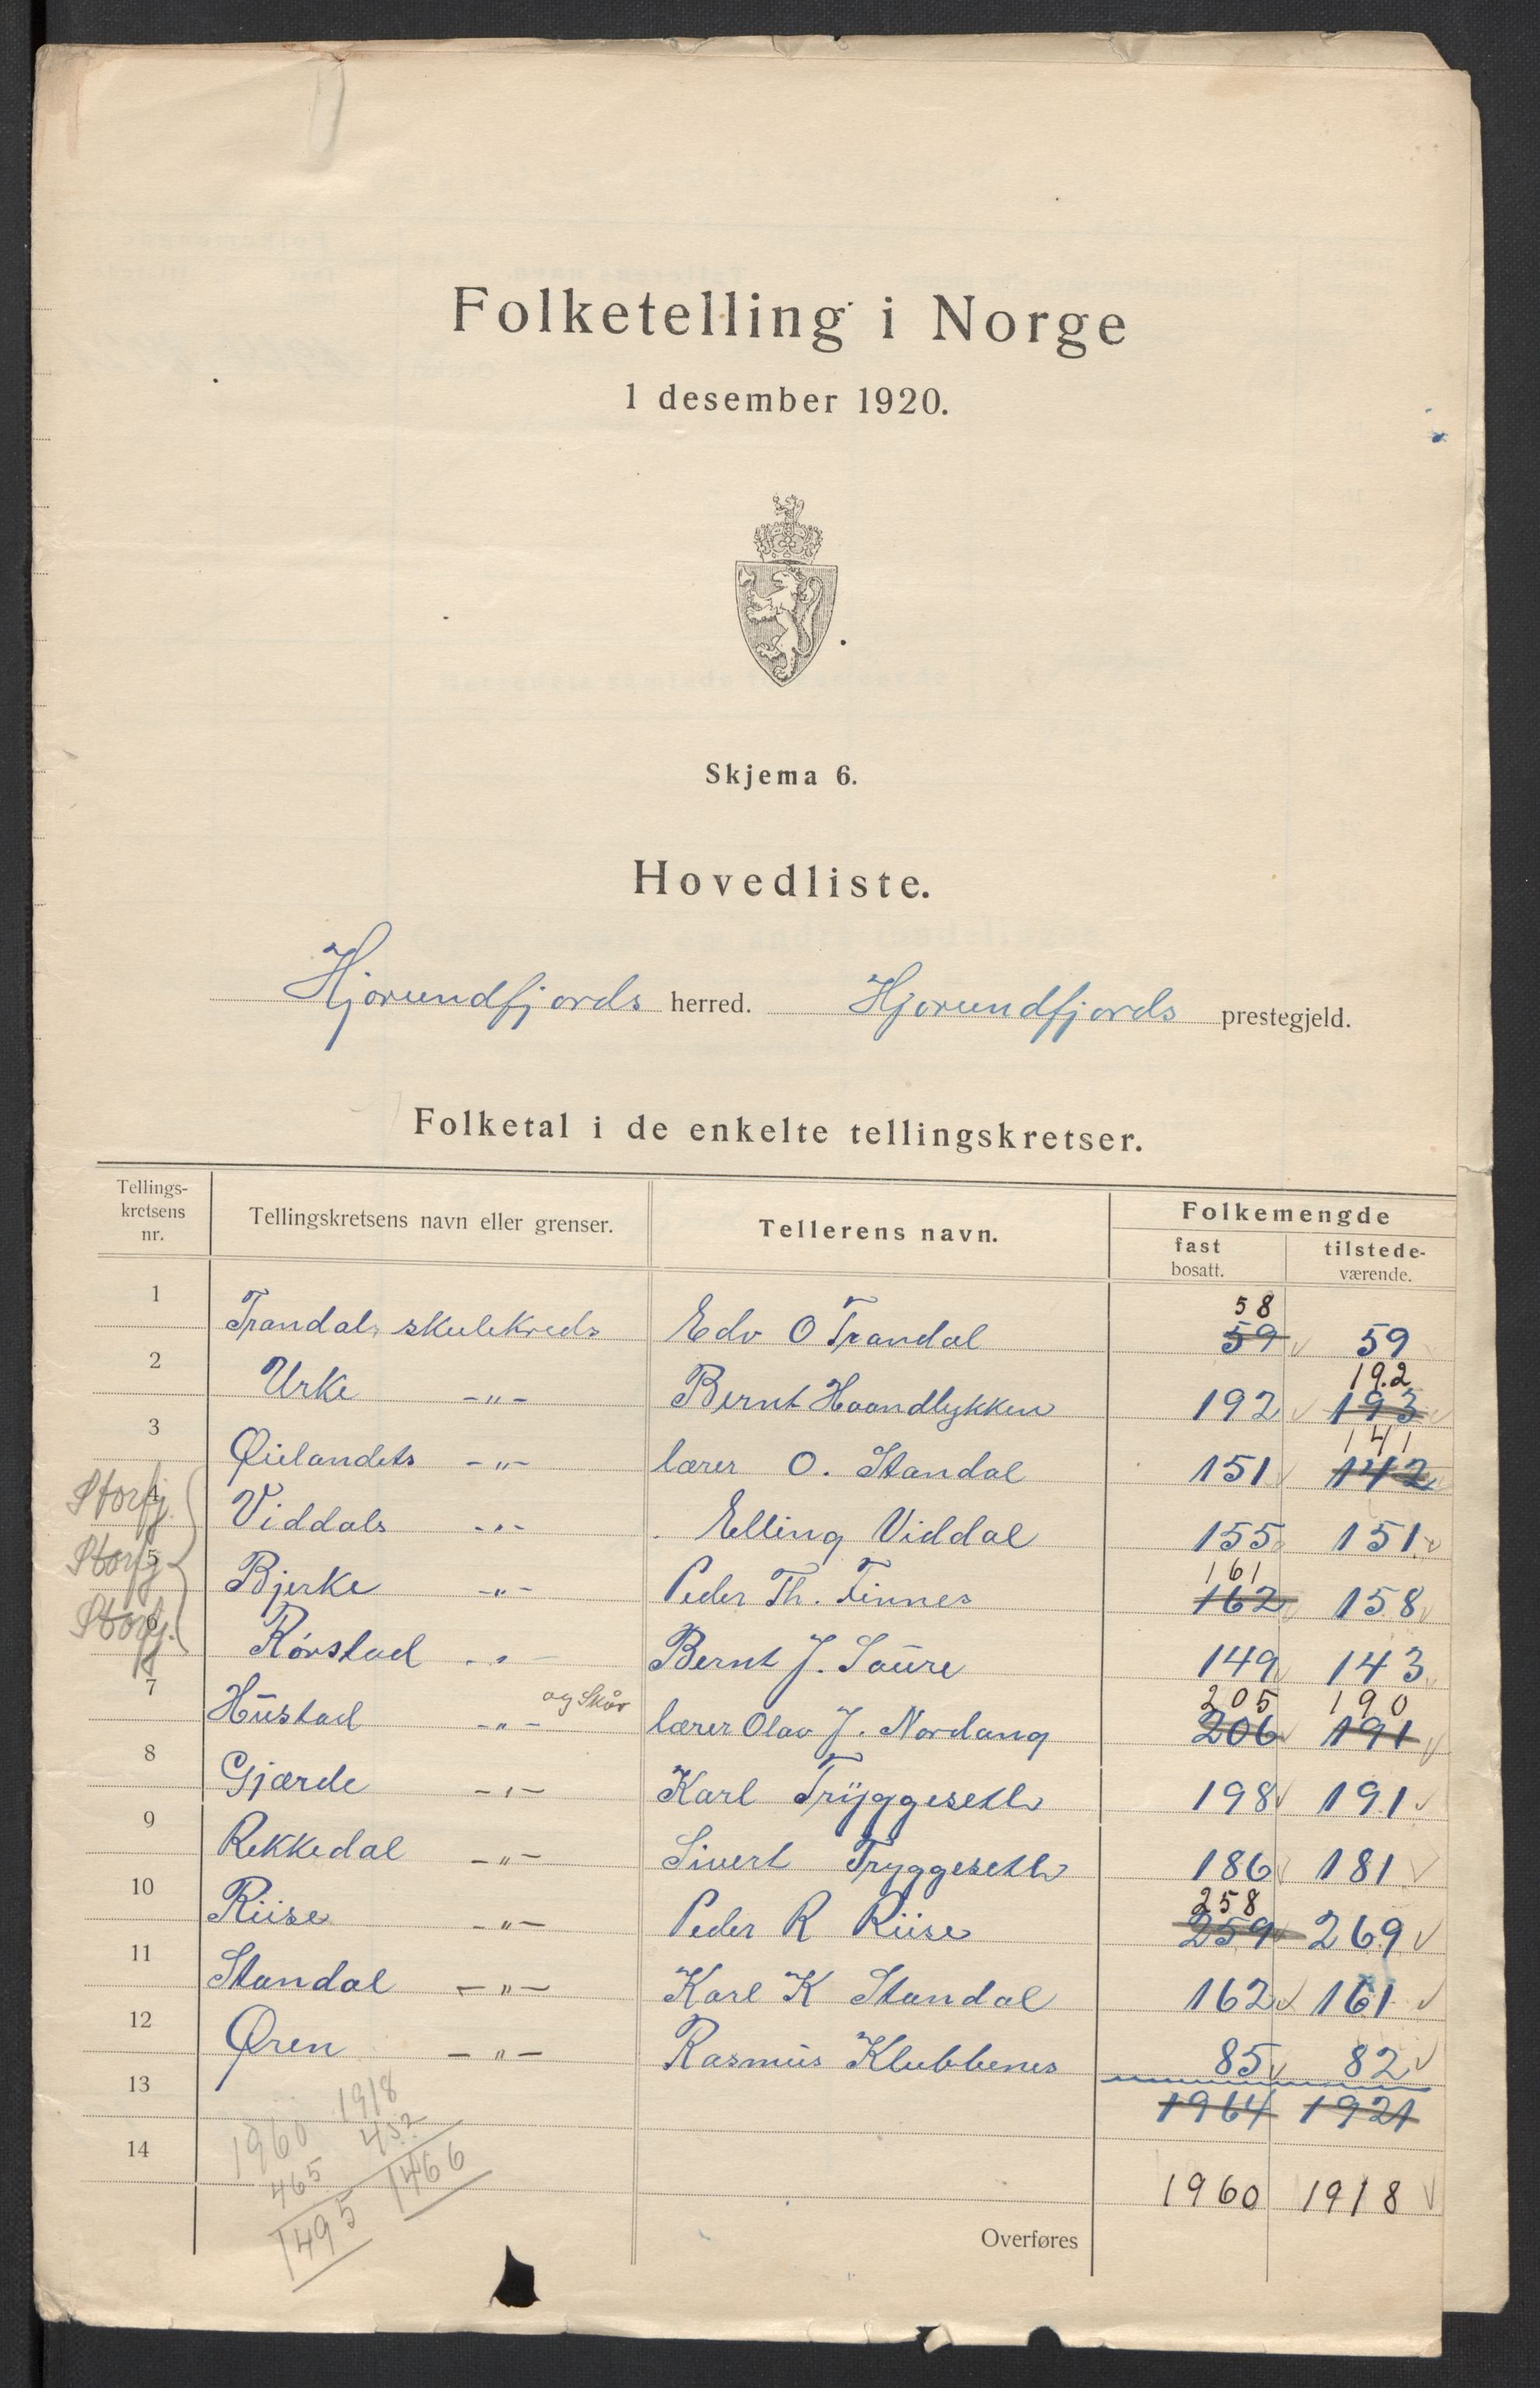 Folketelling i Norge
1 desember 1920.
Skjema 6.
Hovedliste.
Hjørundfjords herred. Hjørundfjords prestegjeld.
Folketal i de enkelte tellingskretser.
Tellings-kretsens nr. Tellingskretsens navn eller grenser. Tellerens navn. Folkemengde
fast bosatt. tilstede-værende.
58
1 Trandals skulekreds Edv O Trandal 59 59
192
2 Urke -"- Bernt Haandlykken 192 193
141
3 Øielandets -"- lærer O. Standal 151 142
Storfj. 4 Viddals -"- Elling Viddal 155 151
161
Storfj. 5 Bjerke -"- Peder Th. Finnes 162 158
Storfj. 6 Rørstad -"- Bernt J. Saure 149 143
205 190
7 Hustad -"- og Skår lærer Olav J. Nordang 206 191
8 Gjærde -"- Karl Tryggeseth 198 191
9 Rekkedal -"- Sivert Tryggeseth 186 181
258
10 Riise -"- Peder R Riise 259 269
11 Standal -"- Karl K Standal 162 161
12 Øren -"- Rasmus Klubbenes 85 82
13 1964 1921
14 1960 1918
1960 1918
465 452
1495 1466
Overføres